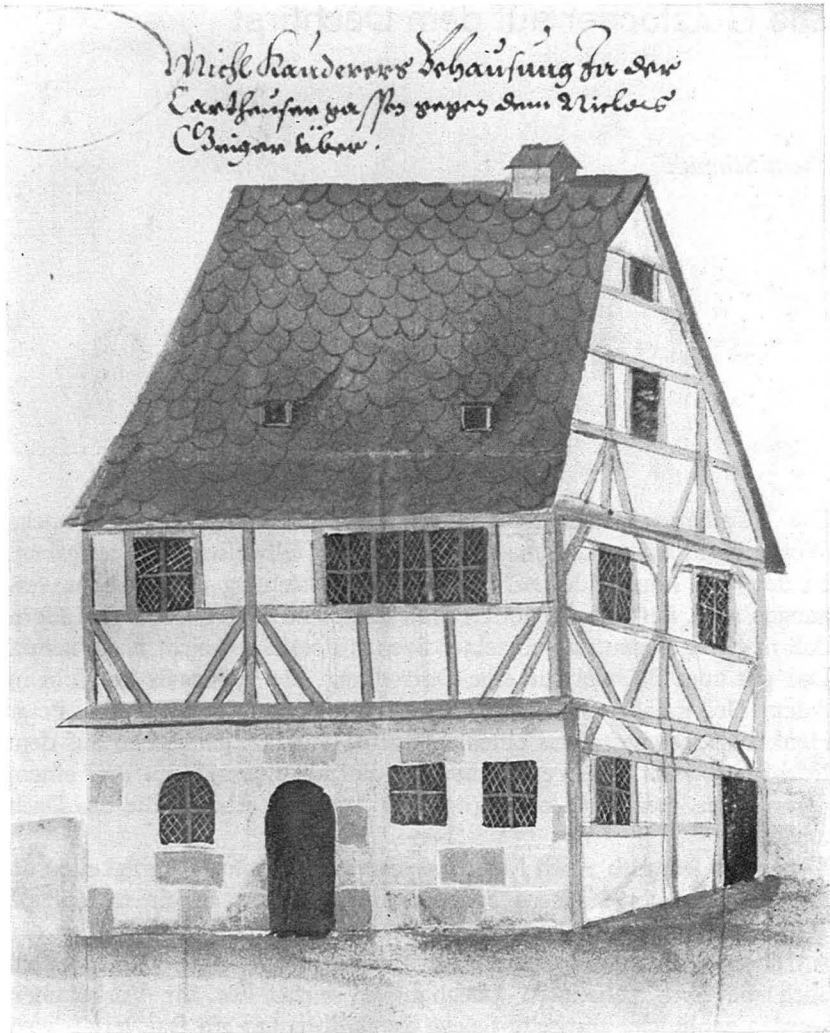 Michl Kanderers Behausung In der
Cartheuser gassen gegen dem Niclas
Geiger über.